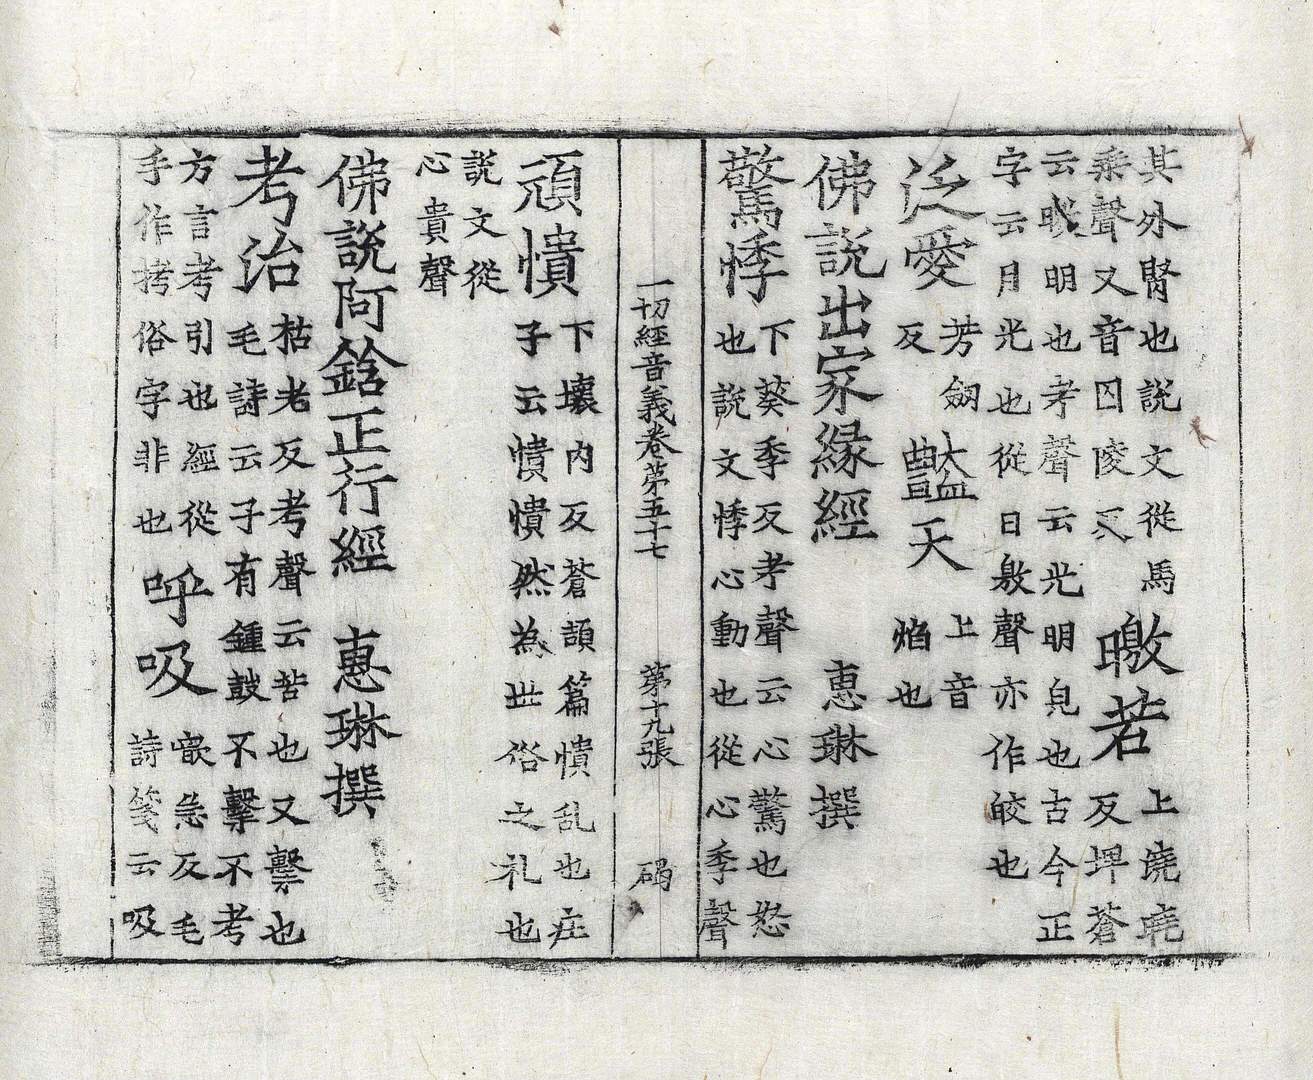 其外腎也說文從馬
乘聲又音囚陵反
曒若
上澆皢
反埤蒼
云晈明也考聲云光明皃也古今正
字云月光也從日敫聲亦作皎也
泛愛
芳劒
反
豔天
上音
焰也
佛說出家緣經 惠琳撰
驚悸
下葵季反考聲云心驚也
也說文悸心動也從心季聲
一切經音義卷第五十七 第十九張 碣
頑憒
下壞內反蒼頡篇憒乱也庄
子云憒憒然為世俗之礼也
說文從
心貴聲
佛說阿鋡正行經 惠琳撰
考治
枯老反考聲云苦也又擊也
毛詩云子有鍾鼓不擊不考
方言考引也經從
手作拷俗字非也
呼吸
歆急反毛
詩箋云吸